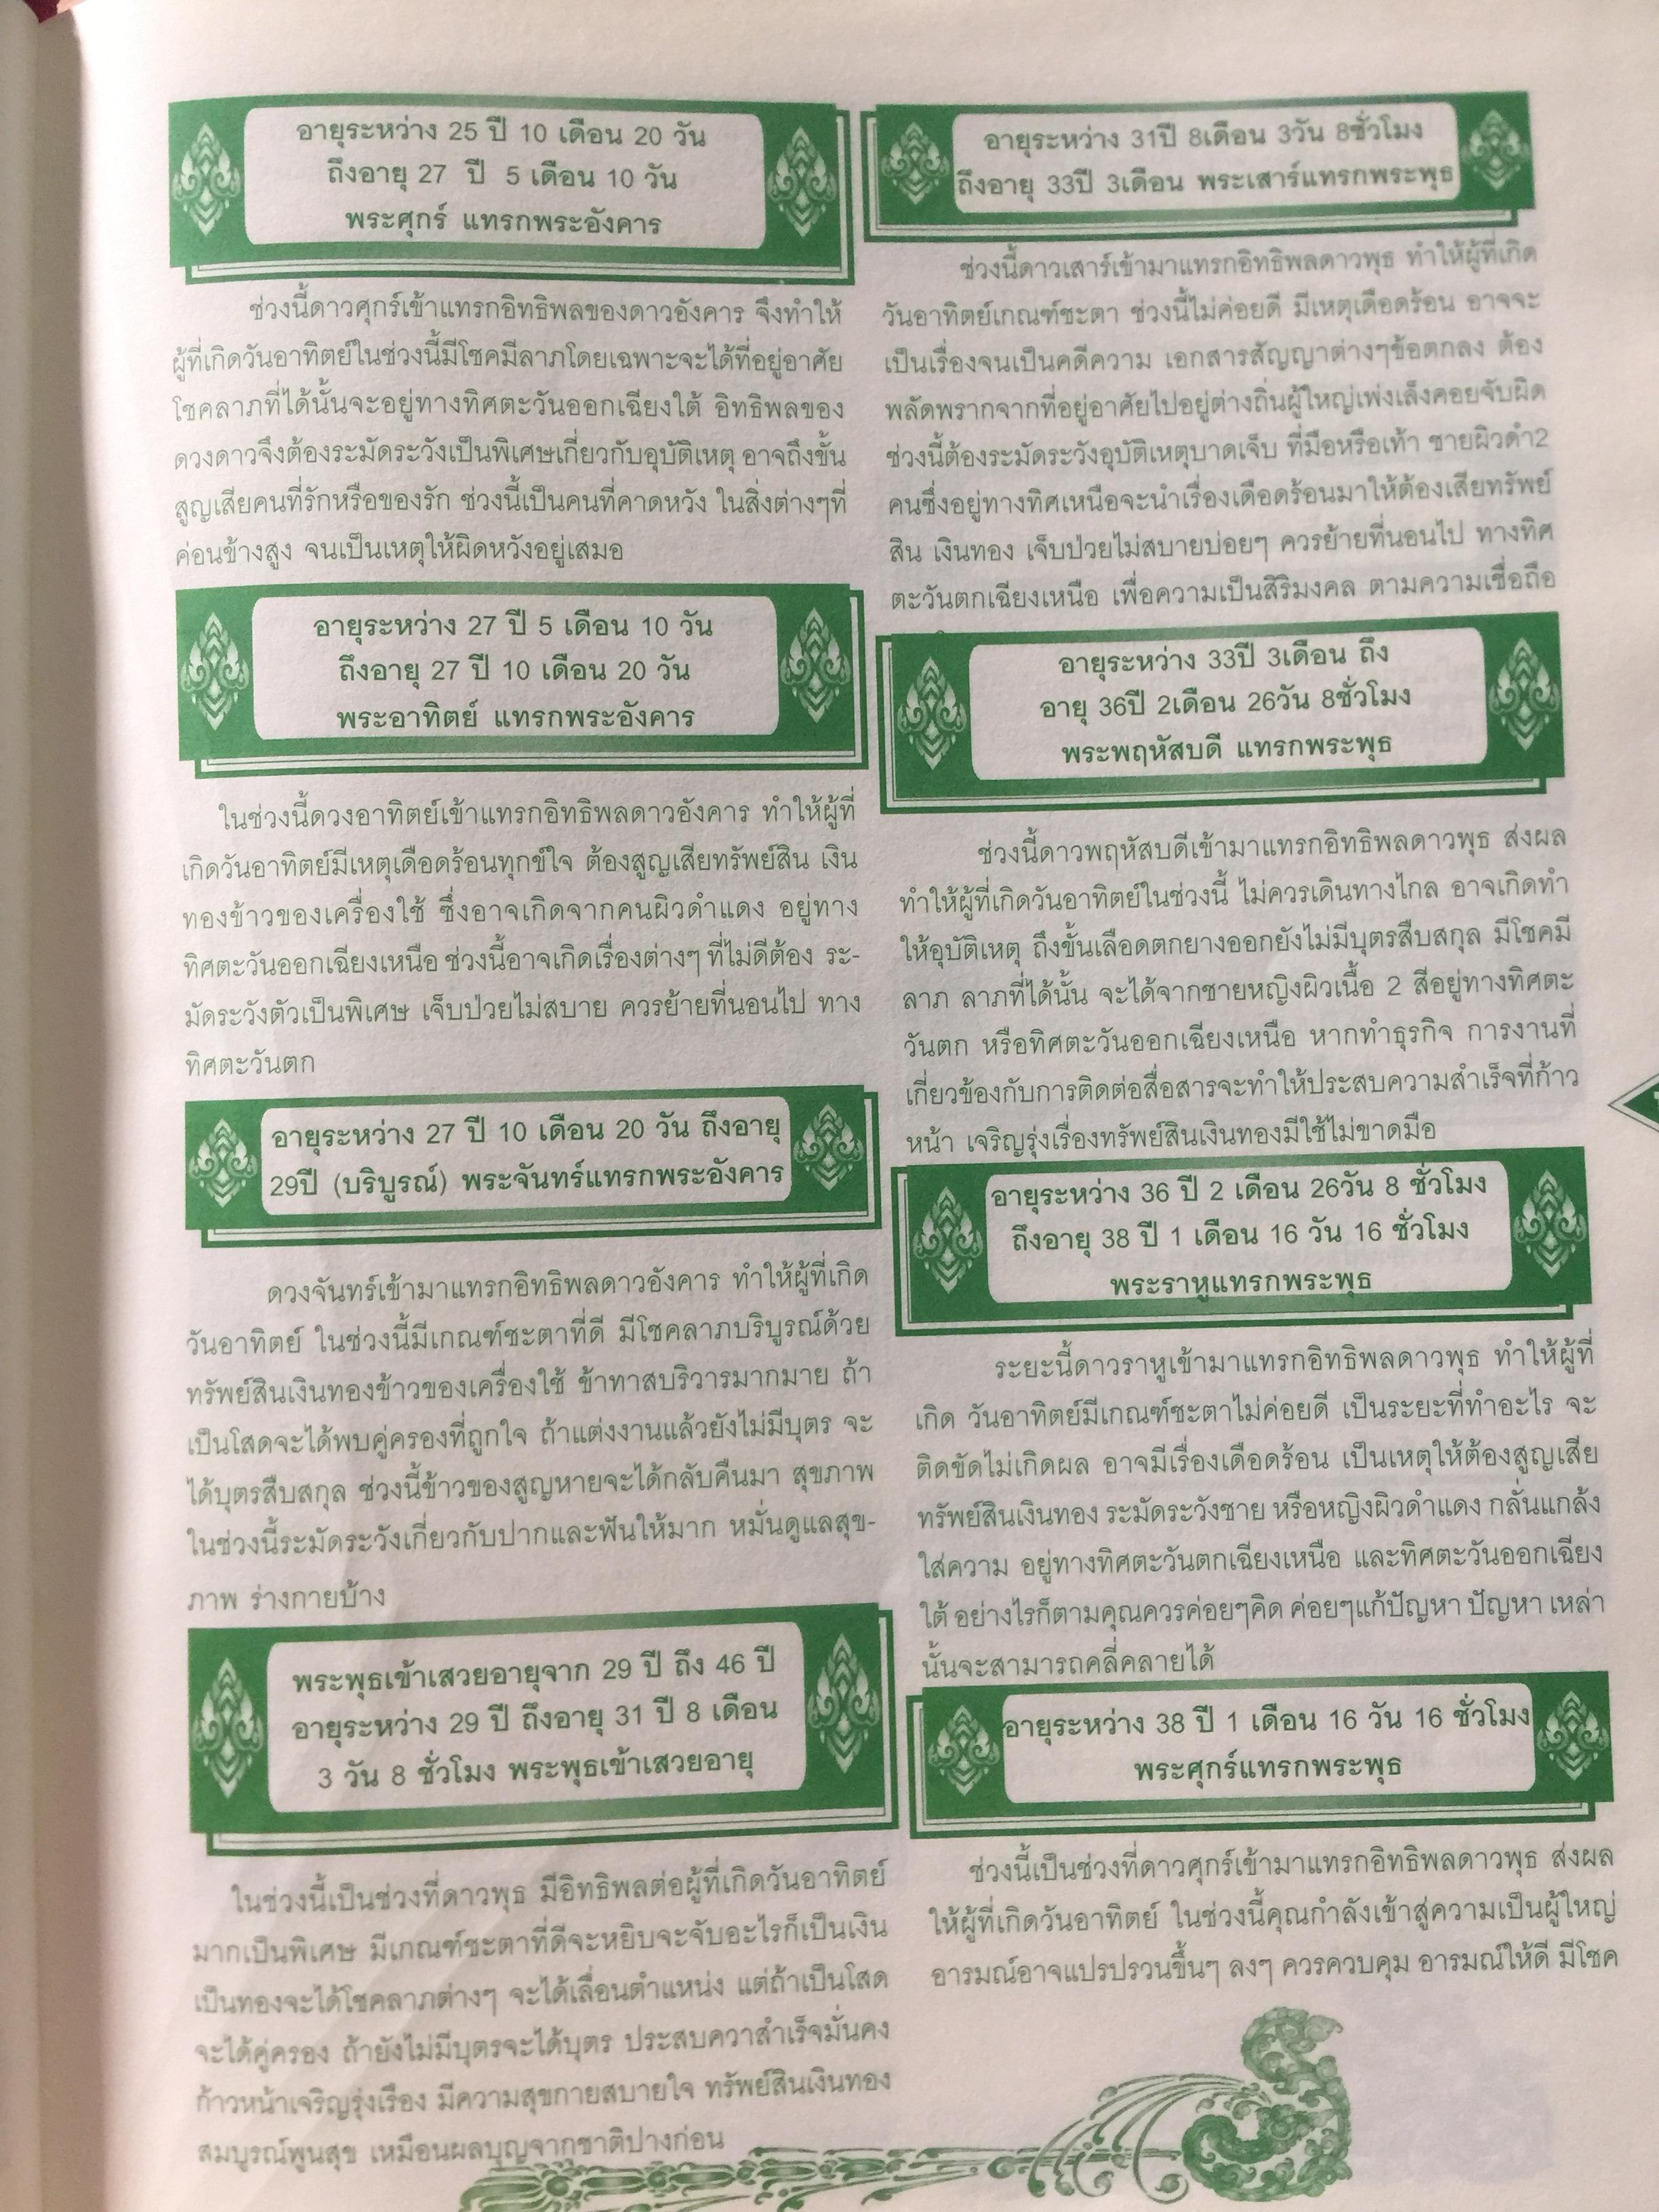 อายุระหว่าง 25 ปี 10 เดือน 20 วัน
ถึงอายุ 27 ปี 5 เดือน 10 วัน
พระศุกร์ แทรกพระอังคาร
ช่วงนี้ดาวศุกร์เข้าแทรกอิทธิพลของดาวอังคาร จึงทำให้
ผู้ที่เกิดวันอาทิตย์ในช่วงนี้มีโชคมีลาภโดยเฉพาะจะได้ที่อยู่อาศัย
โชคลาภที่ได้นั้นจะอยู่ทางทิศตะวันออกเฉียงใต้ อิทธิพลของ
ดวงดาวจึงต้องระมัดระวังเป็นพิเศษเกี่ยวกับอุบัติเหตุ อาจถึงขั้น
สูญเสียคนที่รักหรือของรัก ช่วงนี้เป็นคนที่คาดหวัง ในสิ่งต่างๆที่
ค่อนข้างสูง จนเป็นเหตุให้ผิดหวังอยู่เสมอ
อายุระหว่าง 27 ปี 5 เดือน 10 วัน
ถึงอายุ 27 ปี 10 เดือน 20 วัน
พระอาทิตย์ แทรกพระอังคาร
ในช่วงนี้ดวงอาทิตย์เข้าแทรกอิทธิพลดาวอังคาร ทำให้ผู้ที่
เกิดวันอาทิตย์มีเหตุเดือดร้อนทุกข์ใจ ต้องสูญเสียทรัพย์สิน เงิน
ทองข้าวของเครื่องใช้ ซึ่งอาจเกิดจากคนผิวดำแดง อยู่ทาง
ทิศตะวันออกเฉียงเหนือ ช่วงนี้อาจเกิดเรื่องต่างๆ ที่ไม่ดีต้อง ระ-
มัดระวังตัวเป็นพิเศษ เจ็บป่วยไม่สบาย ควรย้ายที่นอนไป ทาง
ทิศตะวันตก
อายุระหว่าง 27 ปี 10 เดือน 20 วัน ถึงอายุ
29ปี (บริบูรณ์) พระจันทร์แทรกพระอังคาร
ดวงจันทร์เข้ามาแทรกอิทธิพลดาวอังคาร ทำให้ผู้ที่เกิด
วันอาทิตย์ ในช่วงนี้มีเกณฑ์ชะตาที่ดี มีโชคลาภบริบูรณ์ด้วย
ทรัพย์สินเงินทองข้าวของเครื่องใช้ ข้าทาสบริวารมากมาย ถ้า
เป็นโสดจะได้พบคู่ครองที่ถูกใจ ถ้าแต่งงานแล้วยังไม่มีบุตร จะ
ได้บุตรสืบสกุล ช่วงนี้ข้าวของสูญหายจะได้กลับคืนมา สุขภาพ
ในช่วงนี้ระมัดระวังเกี่ยวกับปากและฟันให้มาก หมั่นดูแลสุข-
ภาพ ร่างกายบ้าง
พระพุธเข้าเสวยอายุจาก 29 ปี ถึง 46 ปี
อายุระหว่าง 29 ปี ถึงอายุ 31 ปี 8 เดือน
3 วัน 8 ชั่วโมง พระพุธเข้าเสวยอายุ
ในช่วงนี้เป็นช่วงที่ดาวพุธ มีอิทธิพลต่อผู้ที่เกิดวันอาทิตย์
มากเป็นพิเศษ มีเกณฑ์ชะตาที่ดีจะหยิบจะจับอะไรก็เป็นเงิน
เป็นทองจะได้โชคลาภต่างๆ จะได้เลื่อนตำแหน่ง แต่ถ้าเป็นโสด
จะได้คู่ครอง ถ้ายังไม่มีบุตรจะได้บุตร ประสบควาสำเร็จมั่นคง
ก้าวหน้าเจริญรุ่งเรือง มีความสุขกายสบายใจ ทรัพย์สินเงินทอง
สมบูรณ์พูนสุข เหมือนผลบุญจากชาติปางก่อน
อายุระหว่าง 31ปี 8เดือน 3วัน 8ชั่วโมง
ถึงอายุ 33ปี 3เดือน พระเสาร์แทรกพระพุธ
ช่วงนี้ดาวเสาร์เข้ามาแทรกอิทธิพลดาวพุธ ทำให้ผู้ที่เกิด
วันอาทิตย์เกณฑ์ชะตา ช่วงนี้ไม่ค่อยดี มีเหตุเดือดร้อน อาจจะ
เป็นเรื่องจนเป็นคดีความ เอกสารสัญญาต่างๆข้อตกลง ต้อง
พลัดพรากจากที่อยู่อาศัยไปอยู่ต่างถิ่นผู้ใหญ่เพ่งเล็งคอยจับผิด
ช่วงนี้ต้องระมัดระวังอุบัติเหตุบาดเจ็บ ที่มือหรือเท้า ชายผิวดำ2
คนซึ่งอยู่ทางทิศเหนือจะนำเรื่องเดือดร้อนมาให้ต้องเสียทรัพย์
สิน เงินทอง เจ็บป่วยไม่สบายบ่อยๆ ควรย้ายที่นอนไป ทางทิศ
ตะวันตกเฉียงเหนือ เพื่อความเป็นสิริมงคล ตามความเชื่อถือ
อายุระหว่าง 33ปี 3เดือน ถึง
อายุ 36ปี 2เดือน 26วัน 8ชั่วโมง
พระพฤหัสบดี แทรกพระพุธ
ช่วงนี้ดาวพฤหัสบดีเข้ามาแทรกอิทธิพลดาวพุธ ส่งผล
ทำให้ผู้ที่เกิดวันอาทิตย์ในช่วงนี้ ไม่ควรเดินทางไกล อาจเกิดทำ
ให้อุบัติเหตุ ถึงขั้นเลือดตกยางออกยังไม่มีบุตรสืบสกุล มีโชคมี
ลาภ ลาภที่ได้นั้น จะได้จากชายหญิงผิวเนื้อ 2 สีอยู่ทางทิศตะ
วันตก หรือทิศตะวันออกเฉียงเหนือ หากทำธุรกิจ การงานที่
เกี่ยวข้องกับการติดต่อสื่อสารจะทำให้ประสบความสำเร็จที่ก้าว
หน้า เจริญรุ่งเรื่องทรัพย์สินเงินทองมีใช้ไม่ขาดมือ
อายุระหว่าง 36 ปี 2 เดือน 26วัน 8 ชั่วโมง
ถึงอายุ 38 ปี 1 เดือน 16 วัน 16 ชั่วโมง
พระราหูแทรกพระพุธ
ระยะนี้ดาวราหูเข้ามาแทรกอิทธิพลดาวพุธ ทำให้ผู้ที่
เกิด วันอาทิตย์มีเกณฑ์ชะตาไม่ค่อยดี เป็นระยะที่ทำอะไร จะ
ติดขัดไม่เกิดผล อาจมีเรื่องเดือดร้อน เป็นเหตุให้ต้องสูญเสีย
ทรัพย์สินเงินทอง ระมัดระวังชาย หรือหญิงผิวดำแดง กลั่นแกล้ง
ใส่ความ อยู่ทางทิศตะวันตกเฉียงเหนือ และทิศตะวันออกเฉียง
ใต้ อย่างไรก็ตามคุณควรค่อยๆคิด ค่อยๆแก้ปัญหา ปัญหา เหล่า
นั้นจะสามารถคลี่คลายได้
อายุระหว่าง 38 ปี 1 เดือน 16 วัน 16 ชั่วโมง
พระศุกร์แทรกพระพุธ
ช่วงนี้เป็นช่วงที่ดาวศุกร์เข้ามาแทรกอิทธิพลดาวพุธ ส่งผล
ให้ผู้ที่เกิดวันอาทิตย์ ในช่วงนี้คุณกำลังเข้าสู่ความเป็นผู้ใหญ่
อารมณ์อาจแปรปรวนขึ้นๆ ลงๆ ควรควบคุม อารมณ์ให้ดี มีโชค